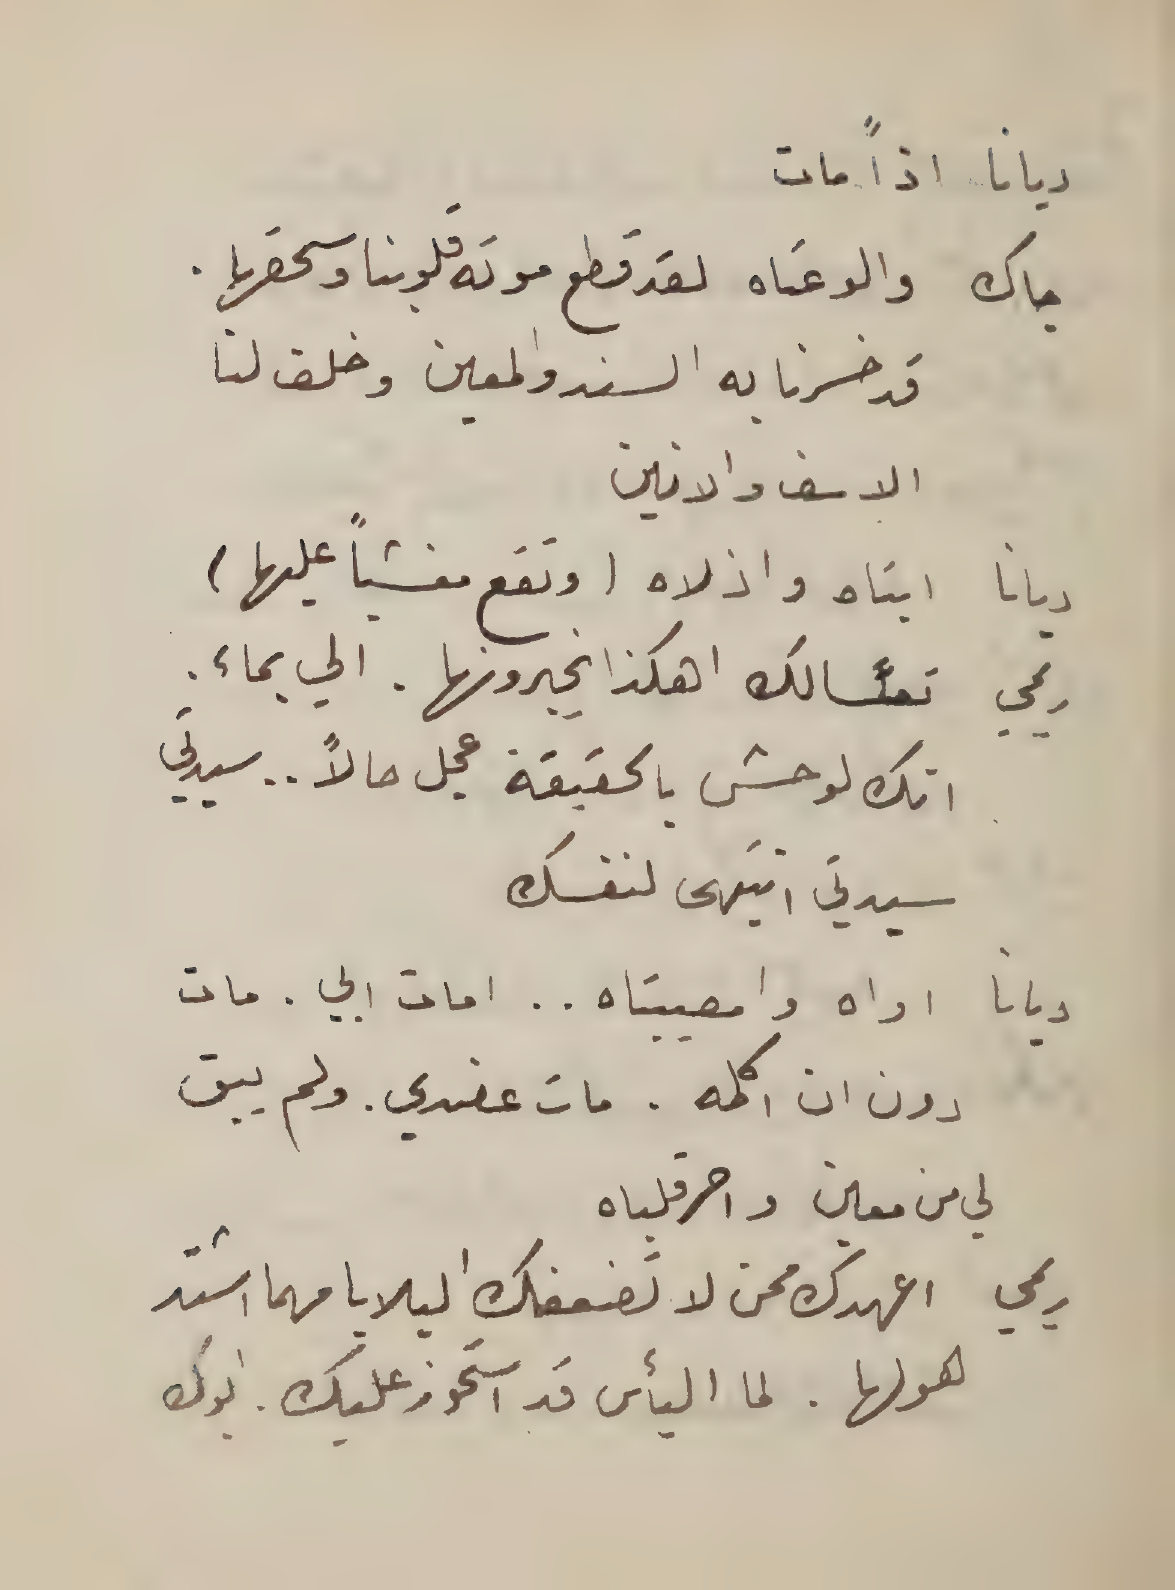 ديانا اذاً مات
جاك والوعتاه لقد قطع موته قلوبنا وسحقها .
قد خسرنا به السند والمعين وخلف لنا
الاسف والانين
ديانا ابتاه واذلاه ( وتقع مغشياً عليها )
ريمي تعساً لك اهكذا تخبرونها . الي بماء .
انك لوحش بالحقيقة عجل حالاً .. سيدتي
سيدتي انتبهى لنفسك
ديانا اواه وامصيبتاه .. امات ابي . مات
دون ان اكلمه . مات عضدي . ولم يبق
لي من معين واحر قلباه
ريمي اعهدك ممن لا تضعضك البلايا مهما اشتد
هولها . لما اليأس قد استحوز عليك . ابوك